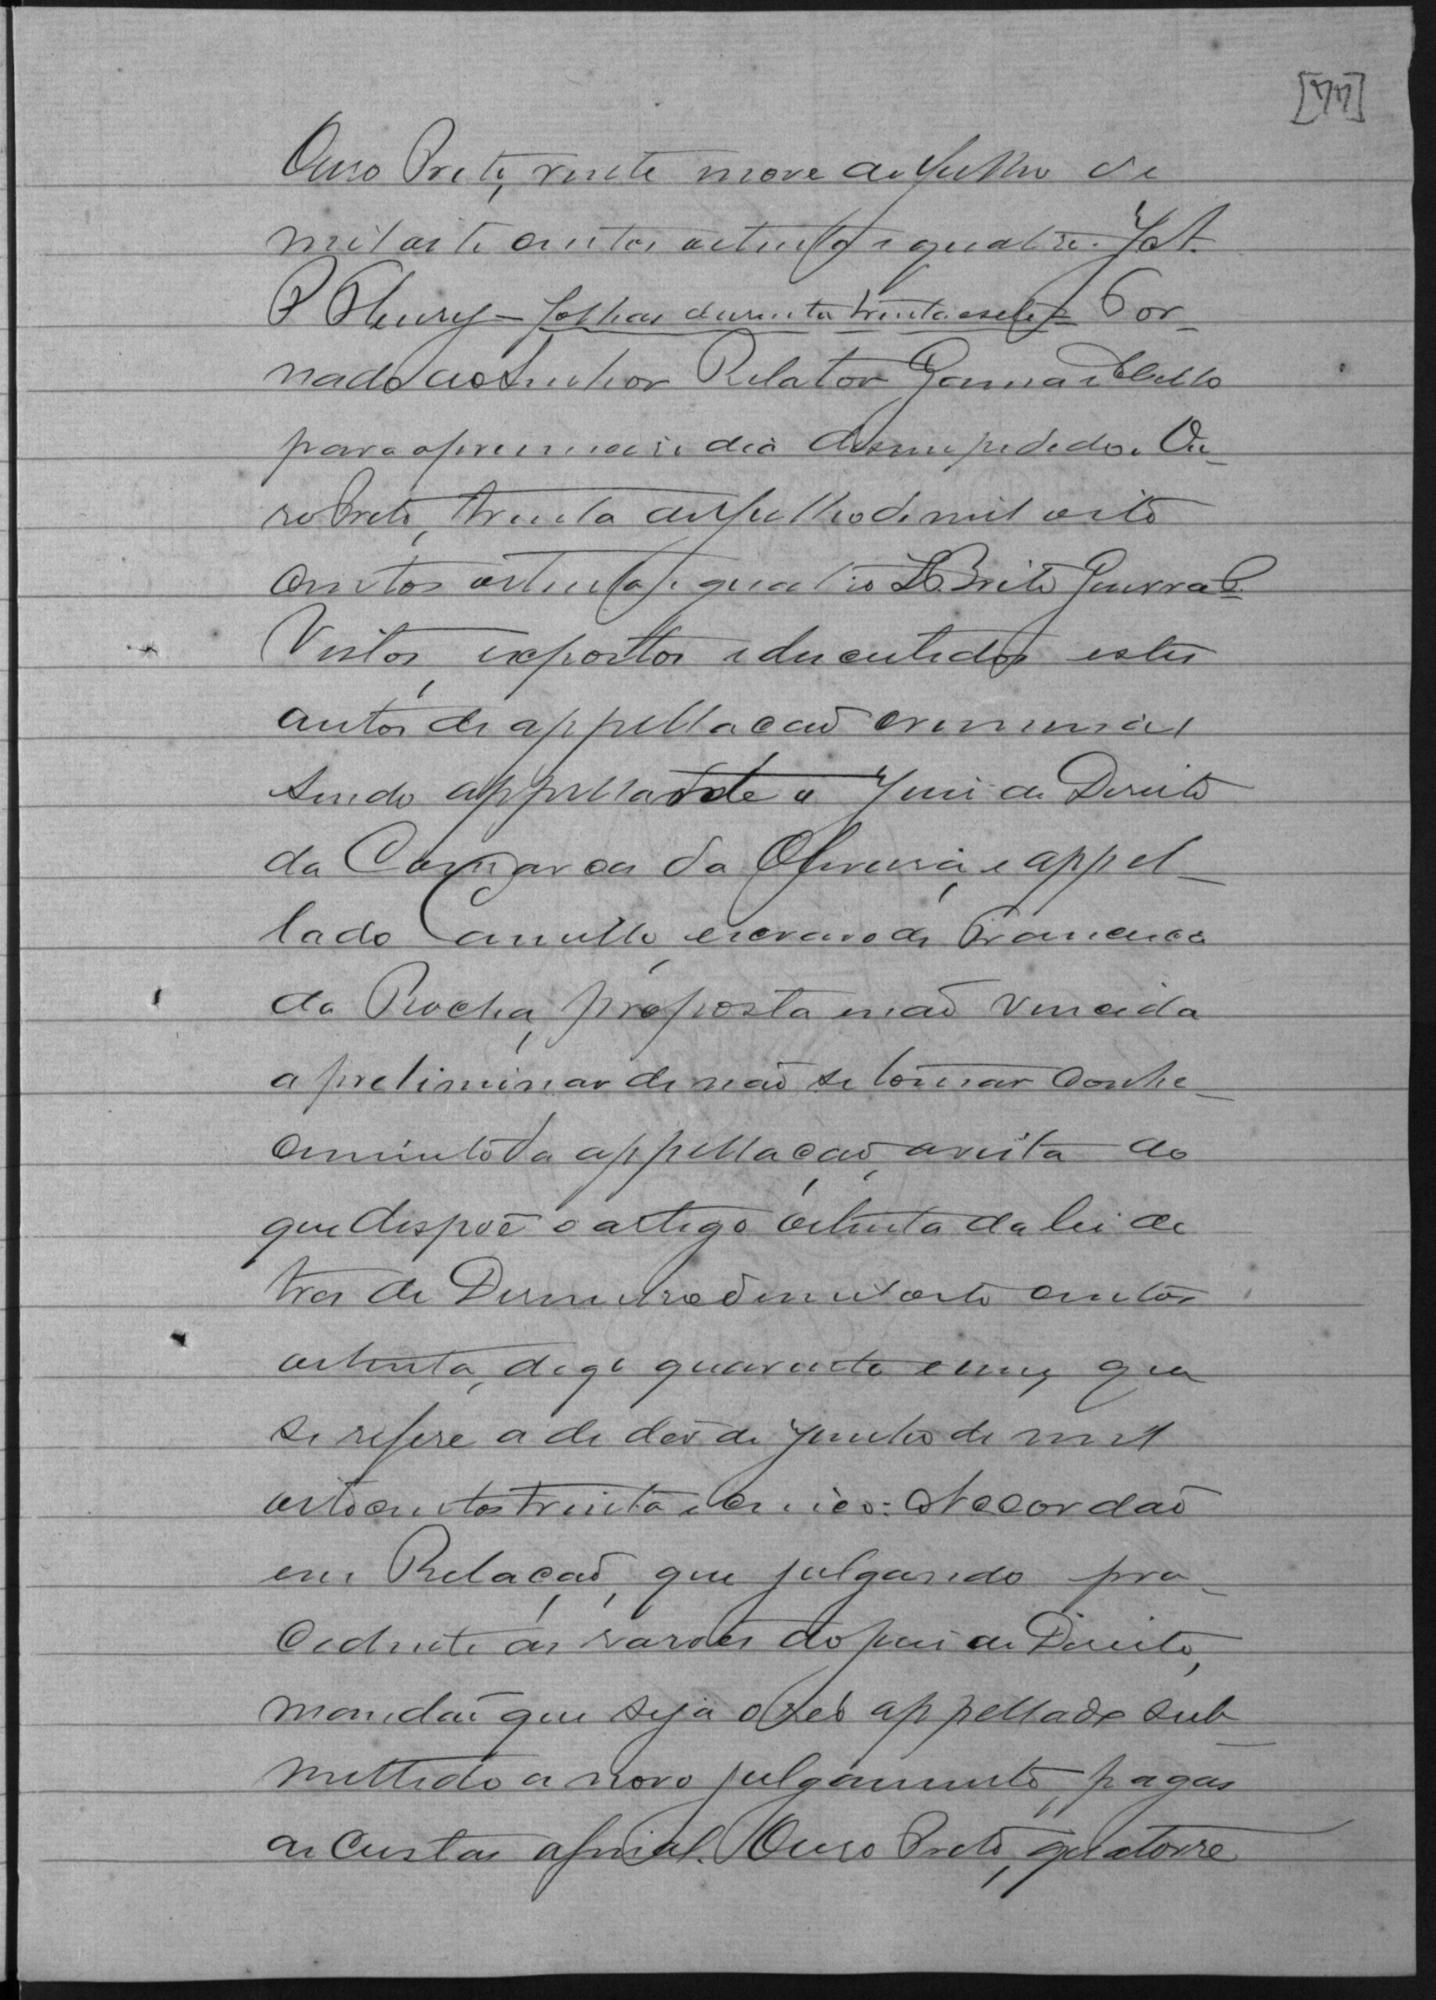 [77]
Ouro Preto, vinte nove de Julho de
mil oito centos oitenta e quatro. J. A.
P Fleury – folhas duzentas trinta e sete – Tor-
nado ao Senhor Relator Gama e Mello
para o primeiro dia desimpedido. Ou-
ro Preto, trinta de Julho de mil oito
centos oitenta e quatro L. Brito Guerra P.
Vistos, expostos e discutidos estes
autos de appellacão criminal
sendo appellante o Juiz de Direito
da Comarca da Oliveira, e appel-
lado Camillo, escravo de Francisca
da Rocha, proposta e não vencida
a preliminar de não se tomar conhe-
cimento da appellação, a vista do
que dispoē o artigo oitenta da lei de
tres de Dezembro de mil oito centos
oitenta, digo quarenta e um, que
se refere a de dez de Junho de mil
oitocentos trinta e cinco: Accordão
em Relação, que julgando pro-
cedente as razoēs do juiz de Direito,
mandão que seja o reo appellado sub-
mettido a novo julgamento, pagas
as custas afinal. Ouro Preto, quatorze